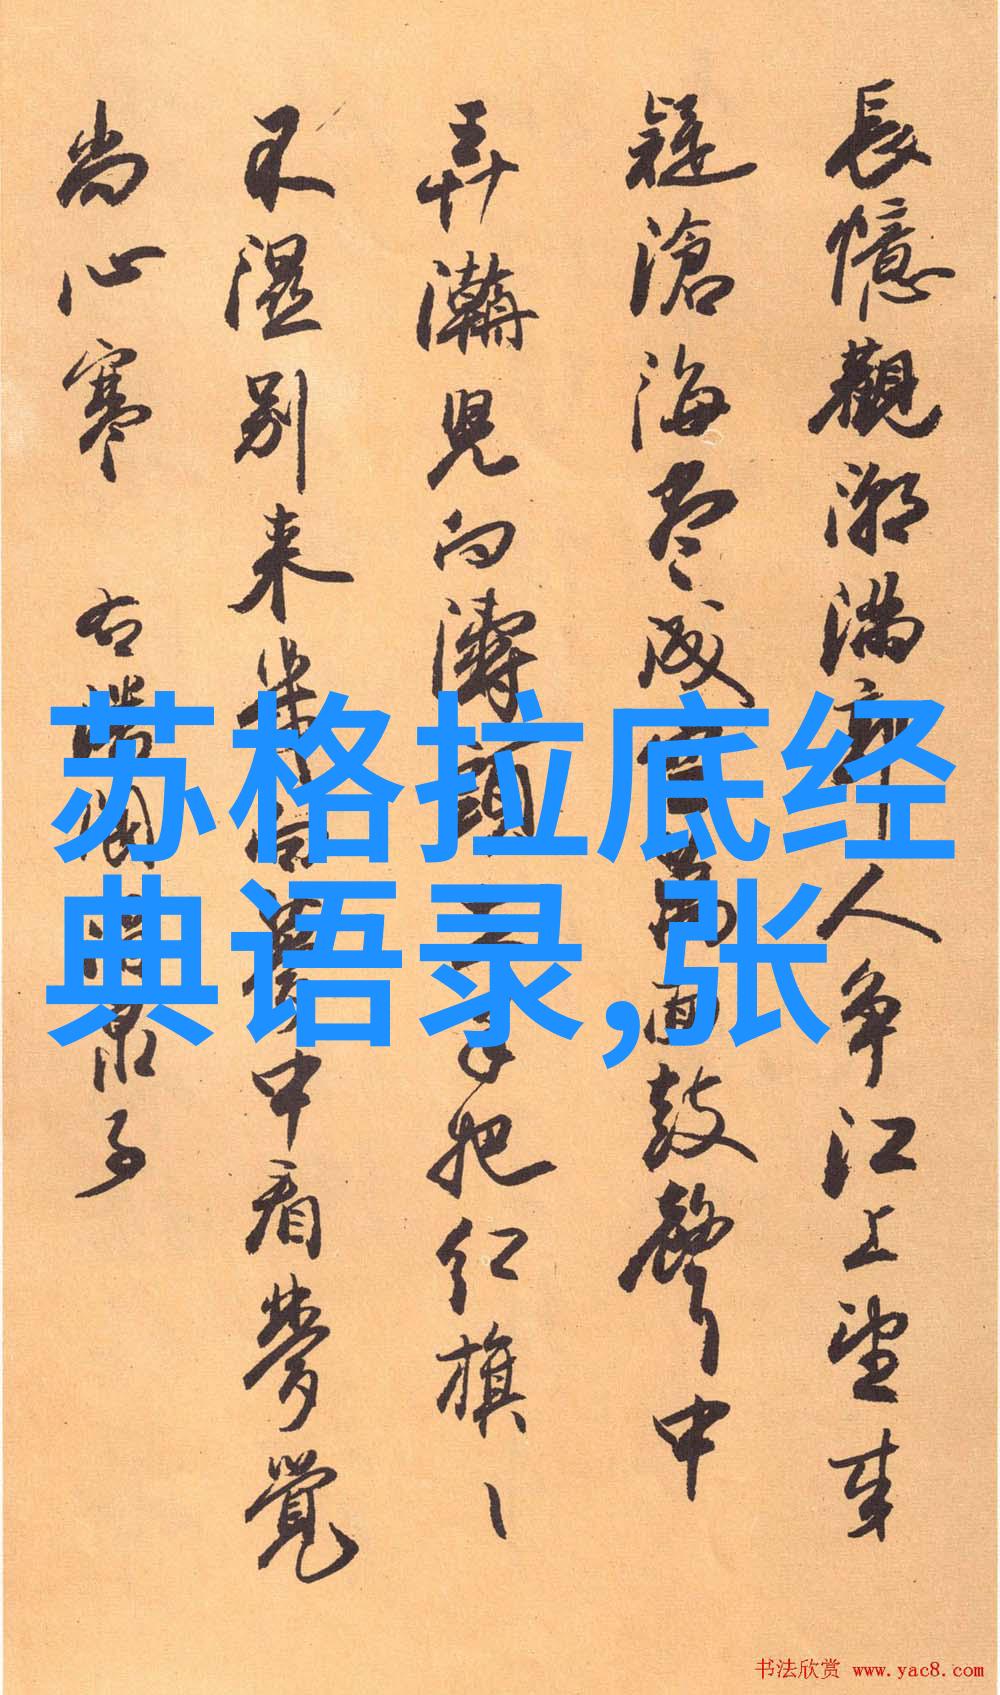 長憶觀潮満郭人争江上望来
疑滄海尽成空萬面鼓聲中
弄濤児向濤頭立手把红旗旗
不濕别来幾向夢中看夢覺
尚心寒 右潘閬酒泉子
苏格拉底经
典语录,张
书法欣赏 www.yac8.com